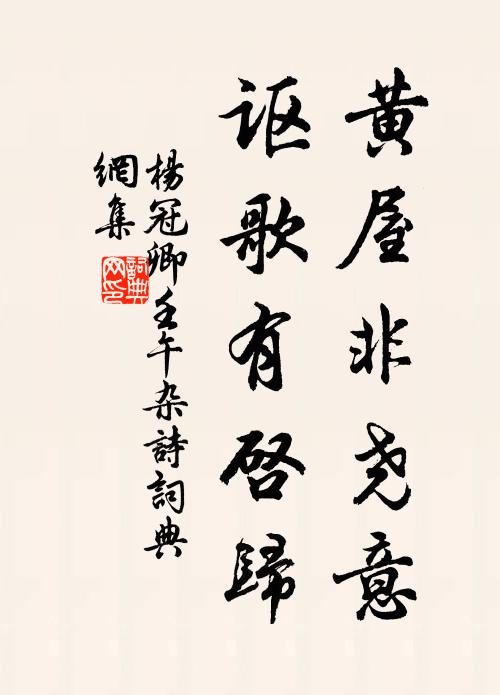 黄屋非尧意
讴歌有啓歸
楊冠卿壬午杂詩詞典
網集
詞典
网印